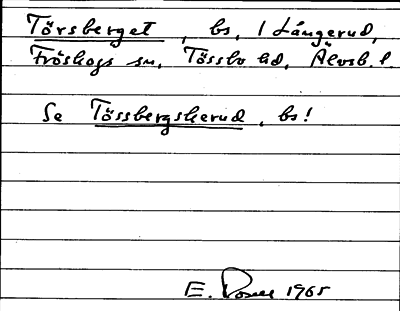 Törsberget, bs, / Långerud,
Fröskogs sn, Tössbo hd, Älvsb. l.
Se Tössbergskerud, bs!
E. 1965